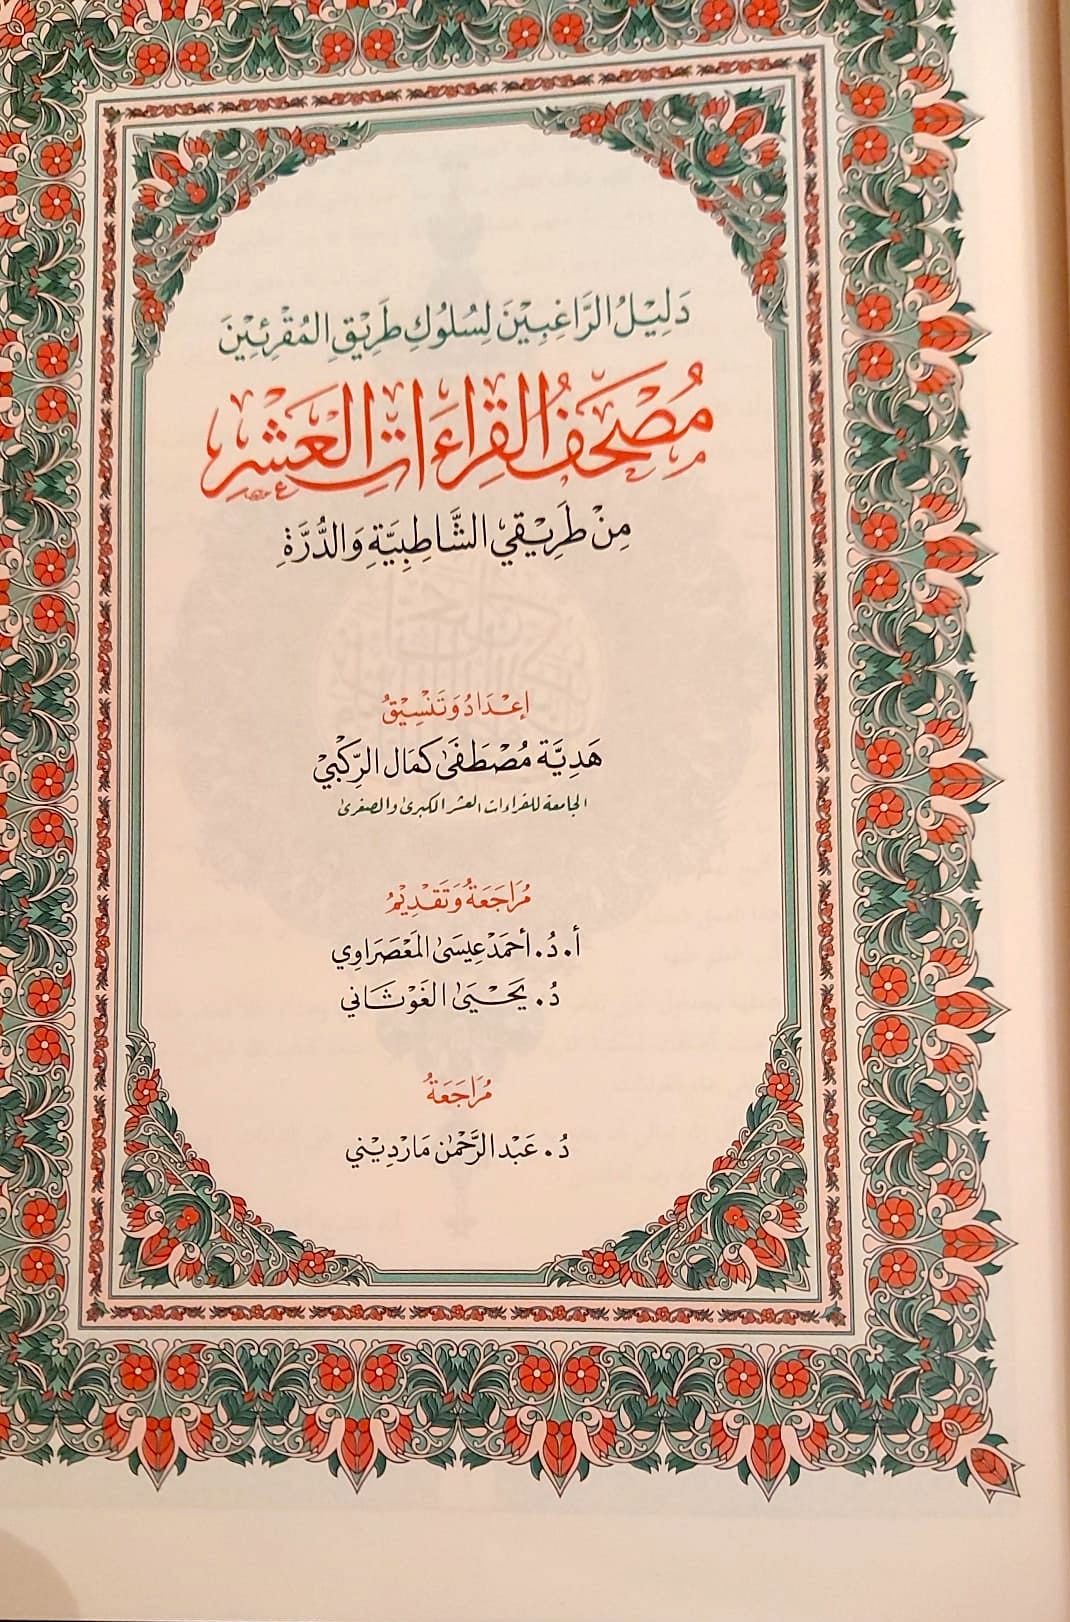 دَلِيْلُ الرَّاغِبِيْنَ لِسُلُوكِ طَرِيْقِ المُقْرِئِيْنَ
مُصْحَفُ القِرَاءَاتِ العَشْرِ
مِنْ طَرِيْقَيِ الشَّاطِبِيَّةِ وَالدُّرَّةِ
إِعْدَادُ وَتَنْسِيْقُ
هَدِيَّة مُصْطَفَىٰ كمَال الرِّكْبِيّ
الجامعة للقراءات العشر الكبرىٰ والصغرىٰ
مُرَاجَعَةُ وَتَقْدِيْمُ
أ. دُ. أحمَدْ عِيسَىٰ المَعْصَرَاوِي
دُ. يَحْيَىٰ الغَوْثَانِي
مُرَاجَعَةُ
دُ. عَبْدالرَّحْمٰن مَارْدِيْنِي